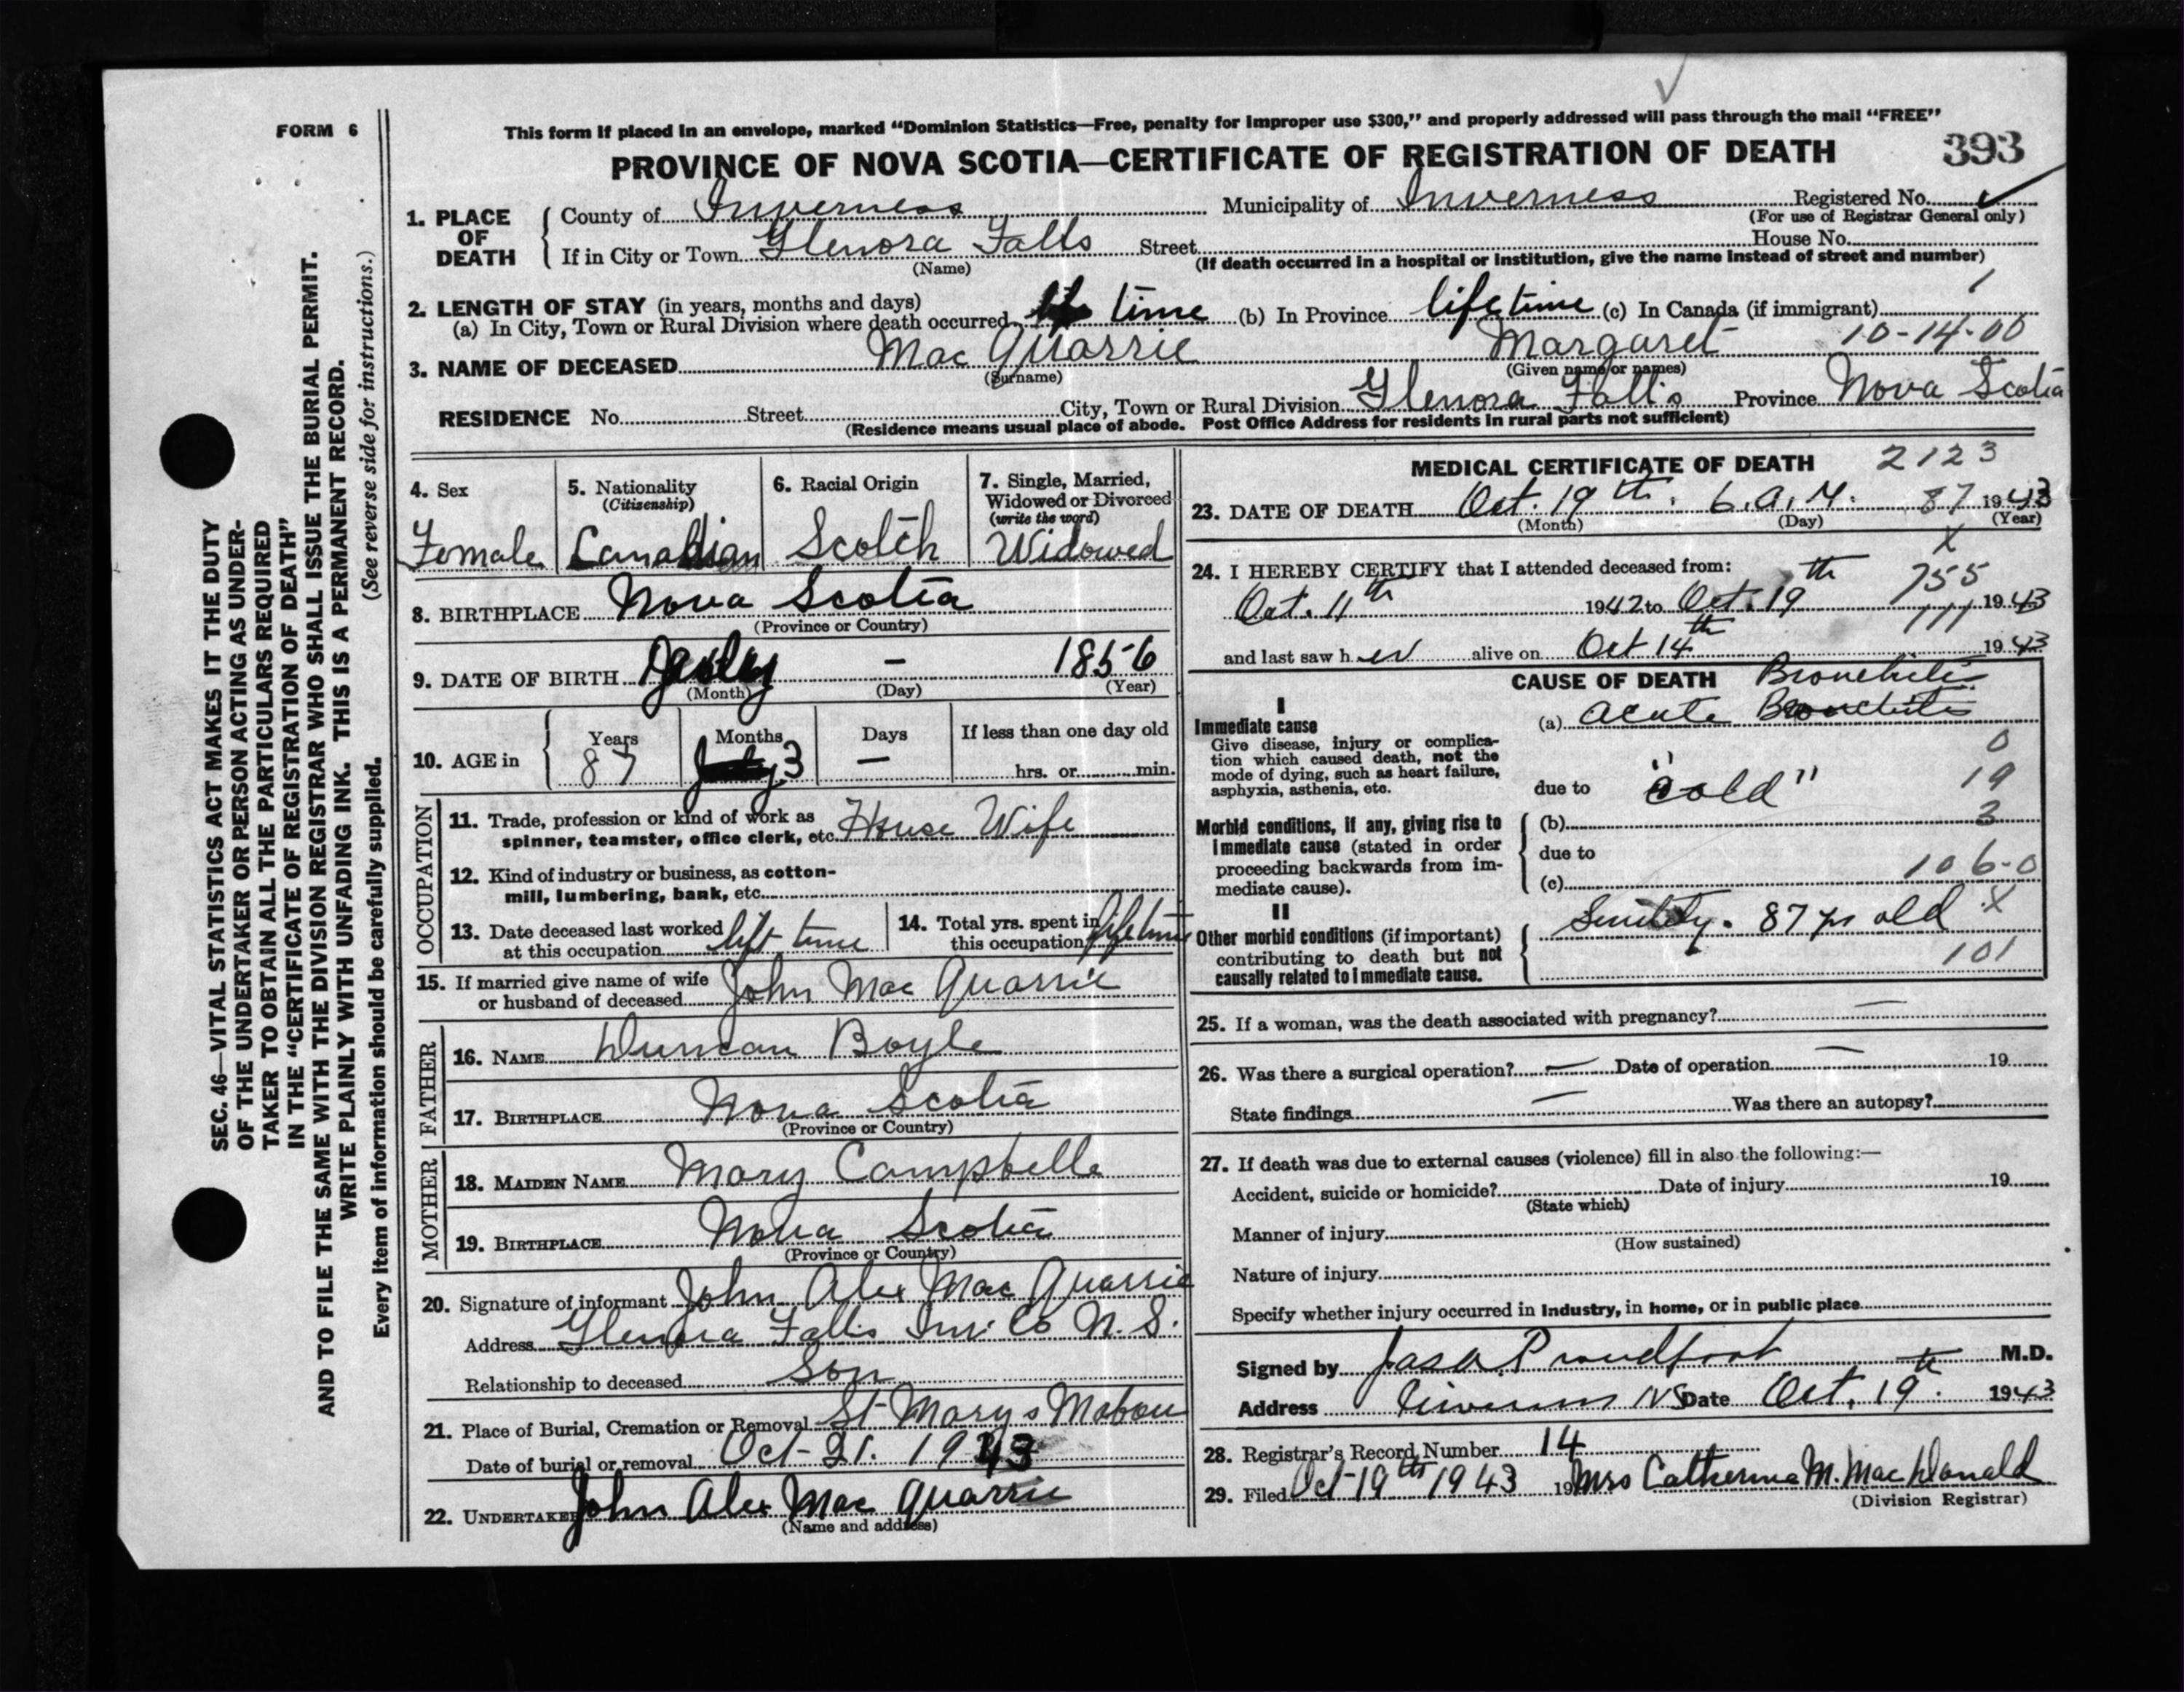 FORM 6
This form if placed in an envelope, marked "Dominion Statistics—Free, penalty for improper use $300," and properly addressed will pass through the mail "FREE"
PROVINCE OF NOVA SCOTIA—CERTIFICATE OF REGISTRATION OF DEATH 393
1. PLACE OF DEATH
County of Inverness Municipality of Inverness Registered No.
(For use of Registrar General only)
If in City or Town Glenora Falls Street House No.
(Name) (If death occurred in a hospital or institution, give the name instead of street and number)
2. LENGTH OF STAY (in years, months and days)
(a) In City, Town or Rural Division where death occurred time (b) In Province lifetime (c) In Canada (if immigrant)
3. NAME OF DECEASED Mac Quarrie Margaret 10-14-00
(Surname) (Given name or names)
RESIDENCE No. Street City, Town or Rural Division Glenora Falls Province Nova Scotia
(Residence means usual place of abode. Post Office Address for residents in rural parts not sufficient)
SEC. 46—VITAL STATISTICS ACT MAKES IT THE DUTY
OF THE UNDERTAKER OR PERSON ACTING AS UNDER-
TAKER TO OBTAIN ALL THE PARTICULARS REQUIRED
IN THE "CERTIFICATE OF REGISTRATION OF DEATH"
AND TO FILE THE SAME WITH THE DIVISION REGISTRAR WHO SHALL ISSUE THE BURIAL PERMIT.
WRITE PLAINLY WITH UNFADING INK. THIS IS A PERMANENT RECORD.
Every item of information should be carefully supplied. (See reverse side for instructions.)
4. Sex
Female
5. Nationality
(Citizenship)
Canadian
6. Racial Origin
Scotch
7. Single, Married,
Widowed or Divorced
(write the word)
Widowed
8. BIRTHPLACE Nova Scotia
(Province or Country)
9. DATE OF BIRTH July — 1856
(Month) (Day) (Year)
10. AGE in
Years Months Days If less than one day old
87 3 — hrs. or min.
OCCUPATION
11. Trade, profession or kind of work as
spinner, teamster, office clerk, etc. House Wife
12. Kind of industry or business, as cotton-
mill, lumbering, bank, etc.
13. Date deceased last worked
at this occupation lift time
14. Total yrs. spent in
this occupation lifetime
15. If married give name of wife
or husband of deceased John Mac Quarrie
FATHER
16. NAME Duncan Boyle
17. BIRTHPLACE Nova Scotia
(Province or Country)
MOTHER
18. MAIDEN NAME Mary Campbelle
19. BIRTHPLACE Nova Scotia
(Province or Country)
20. Signature of informant John Alex Mac Quarrie
Address Glenora Falls Inv. Co N.S.
Relationship to deceased Son
21. Place of Burial, Cremation or Removal St Marys Mabou
Date of burial or removal Oct 21. 1943
22. UNDERTAKER John Alex Mac Quarrie
(Name and address)
MEDICAL CERTIFICATE OF DEATH 2123
23. DATE OF DEATH Oct. 19th. 6.a.M. 87 1943
(Month) (Day) (Year)
X
24. I HEREBY CERTIFY that I attended deceased from:
755
Oct. 11th 1942 to Oct. 19th 1943
111
and last saw her alive on Oct 14th 1943
CAUSE OF DEATH Bronchitis
I
Immediate cause
Give disease, injury or complica-
tion which caused death, not the
mode of dying, such as heart failure,
asphyxia, asthenia, etc.
(a) Acute Bronchitis
0
due to "cold" 19
Morbid conditions, if any, giving rise to
immediate cause (stated in order
proceeding backwards from im-
mediate cause).
(b) 3
due to
(c) 106-0
II
Other morbid conditions (if important)
contributing to death but not
causally related to immediate cause.
Senility. 87 yrs old X
101
25. If a woman, was the death associated with pregnancy? —
26. Was there a surgical operation? — Date of operation — 19
State findings — Was there an autopsy?
27. If death was due to external causes (violence) fill in also the following:—
Accident, suicide or homicide? Date of injury 19
(State which)
Manner of injury
(How sustained)
Nature of injury
Specify whether injury occurred in industry, in home, or in public place
Signed by Jas A Proudfoot M.D.
Address Inverness NS Date Oct. 19th. 1943
28. Registrar's Record Number 14
29. Filed Oct 19th 1943 19 Mrs Catherine M. MacDonald
(Division Registrar)